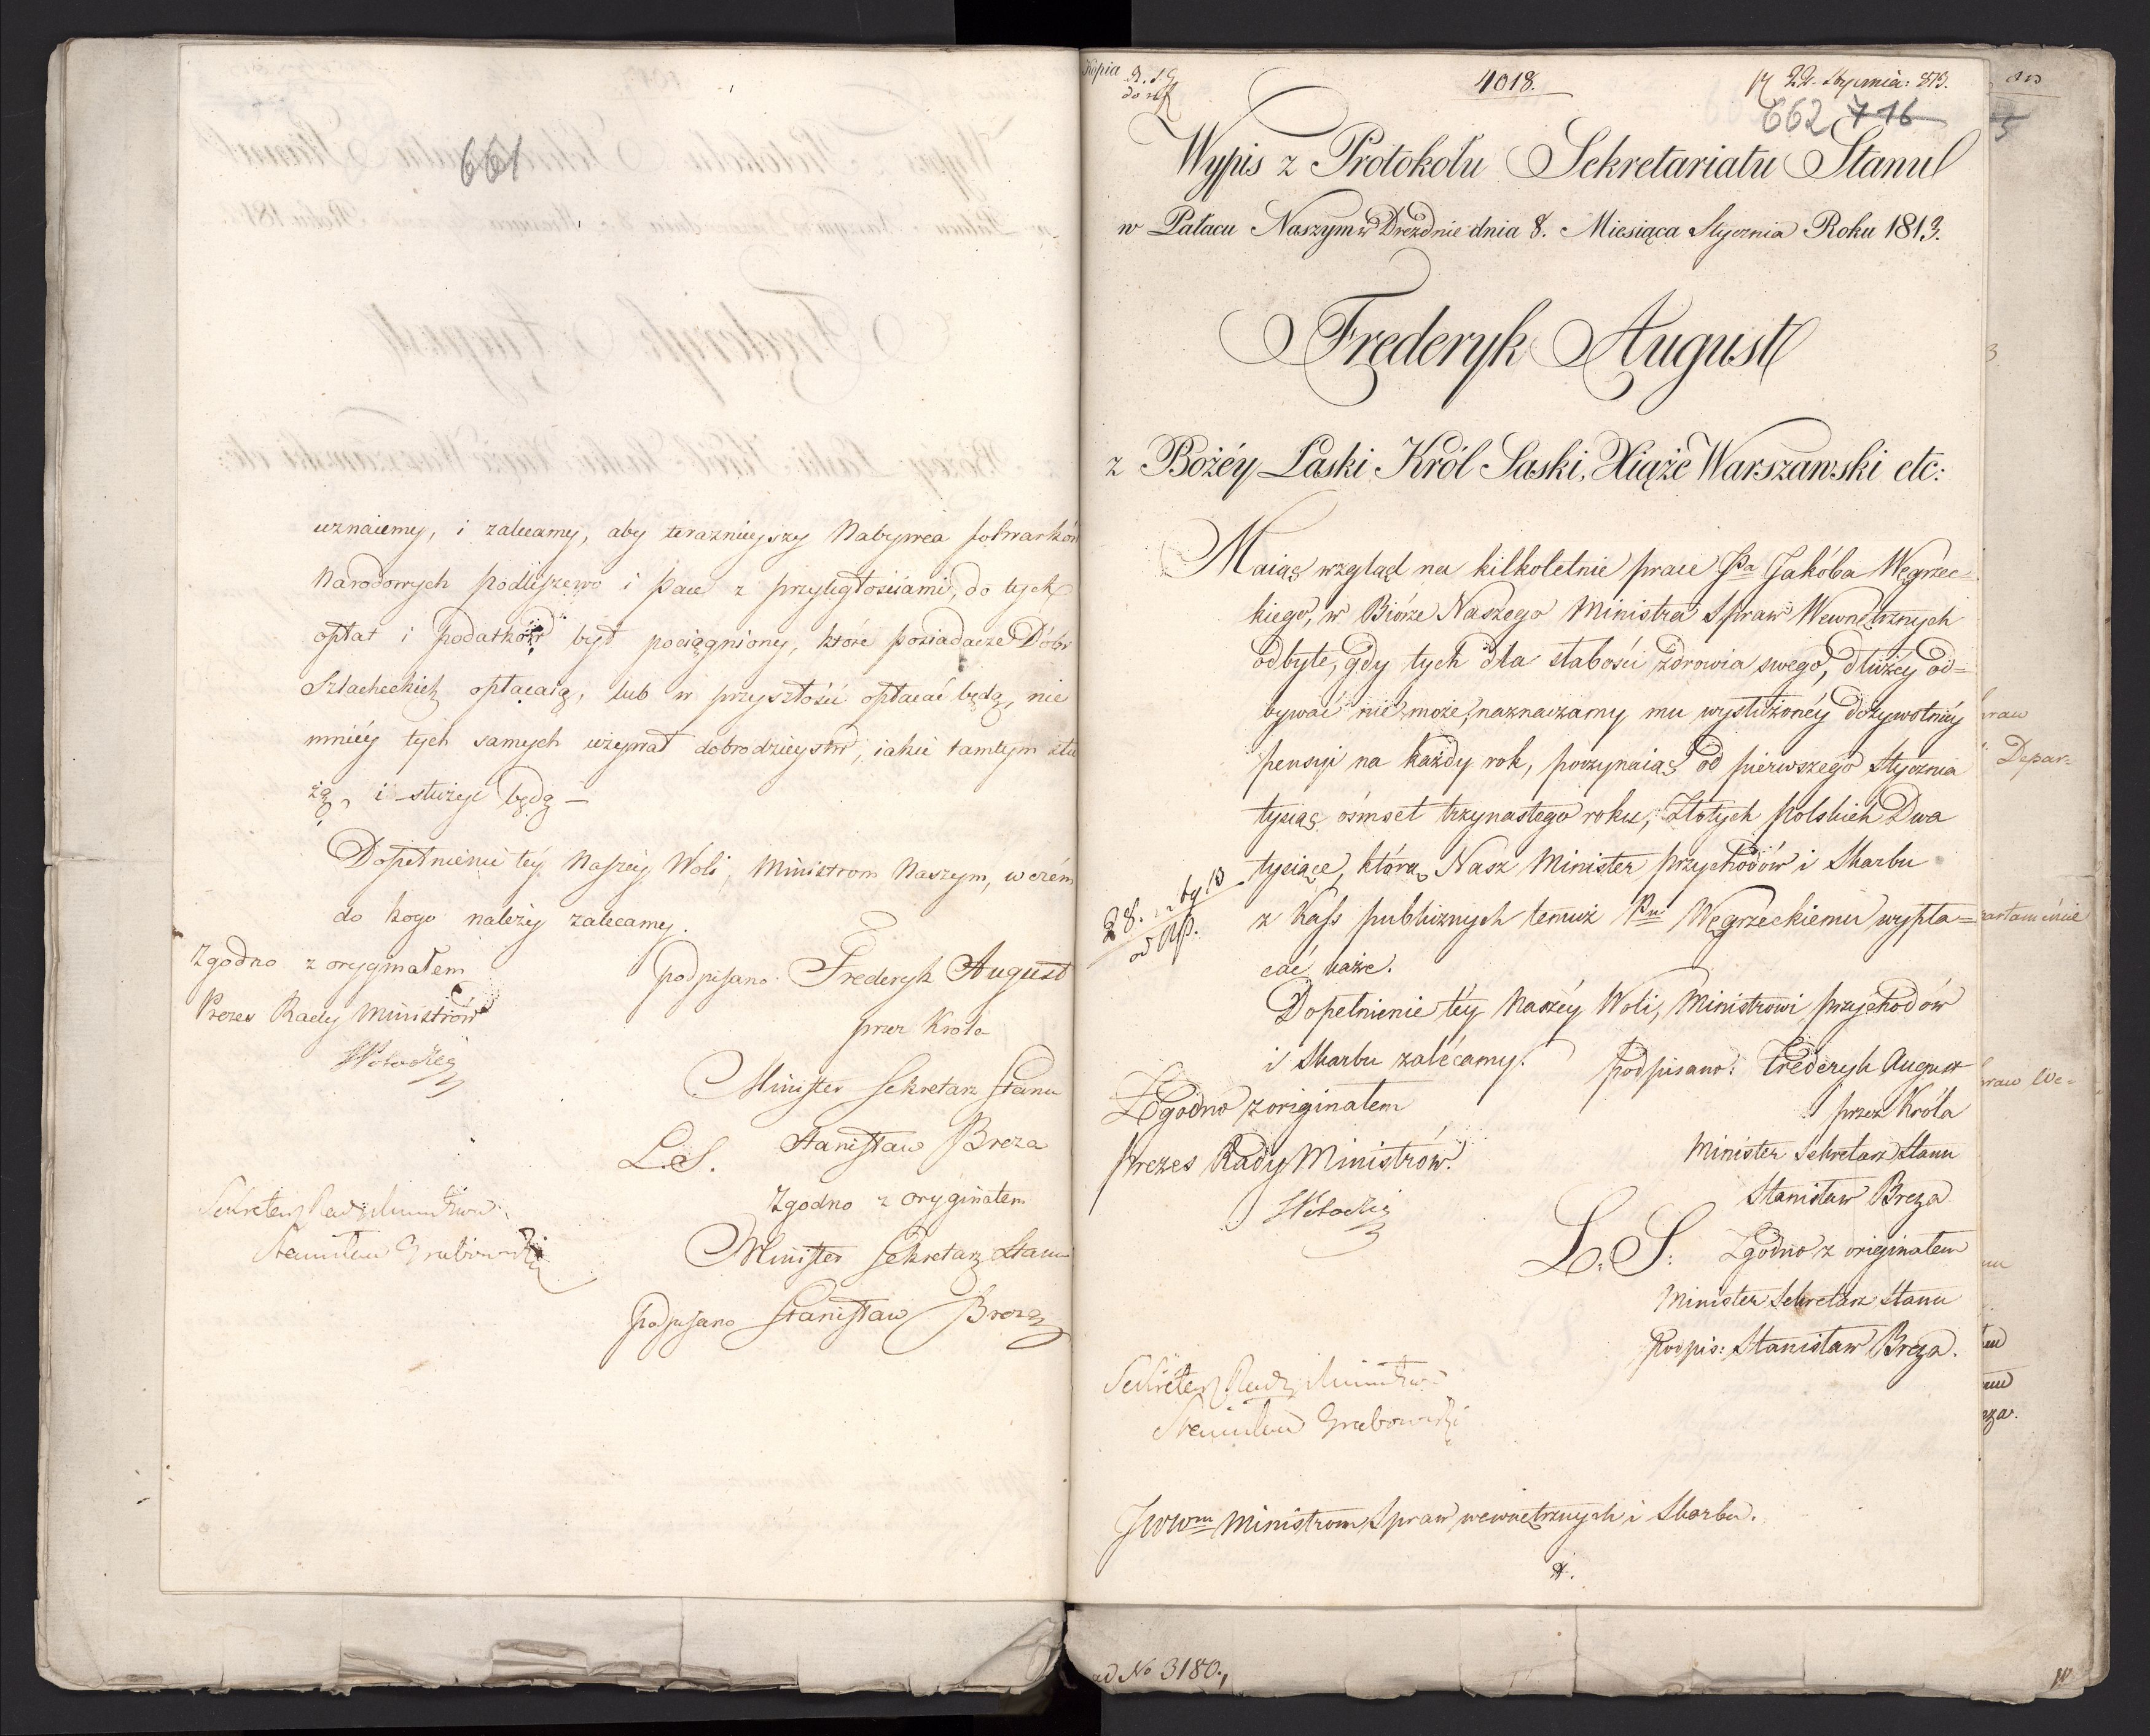 661
uznaiemy, i zalecamy, aby teraznieyszy Nabywca folwarków
Narodowych Podliszewo i Pace z przyległościami, do tych
opłat i podatków był pociągniony, które posiadacze Dóbr
Szlacheckich opłacaią, lub w przyszłości opłacać będą, nie
mniéy tych samych używał dobrodzieystw, iakie tamtym słu
żą, i służyć będą –
Dopełnienie téy Naszéy Woli, Ministrom Naszym, w czém
do kogo należy zalecamy.
Zgodno z oryginałem
Prezes Rady Ministrów
podpisano: Frederyk August
przez Króla
Minister Sekretarz Stanu
L.S. Stanisław Breza
Zgodno z oryginałem
Minister Sekretarz Stanu
podpisano Stanisław Breza
Sekretarz Rady Ministrów
Stanisław Grabowski
Kopia
4018.
22. Stycznia: 813.
662 716
Wypis z Protokołu Sekretariatu Stanu
w Pałacu Naszym w Dreznie dnia 8. Miesiąca Stycznia Roku 1813.
Frederyk August
z Bożéy Łaski Król Saski, Xiąże Warszawski etc:
Maiąc wzgląd na kilkoletnie prace Pa Jakóba Węgrzec=
kiego, w Biórze Naszego Ministra Spraw Wewnętrznych
odbyte, gdy tych dla słabości zdrowia swego, dłużéy od=
bywać nie może, naznaczamy mu wysłużonéy dożywotniéy
pensyi na każdy rok, poczynaiąc od pierwszego Stycznia
tysiąc ośmset trzynastego roku, Złotych polskich Dwa
tysiące, którą Nasz Minister przychodów i Skarbu
z Kass publicznych temuż Pu Węgrzeckiemu wypła=
cać każe.
Dopełnienie téy Naszéy Woli, Ministrowi przychodów
i Skarbu zalécamy.
podpisano: Frederyk August
przez Króla
Minister Sekretarz Stanu
Stanisław Breza
Zgodno z originałem
Prezes Rady Ministrów.
L. S. Zgodno z originałem
Minister Sekretarz Stanu
Podpis: Stanisław Breza.
Sekretarz Rady Ministrów
Stanisław Grabowski
JWWm Ministrom Spraw wewnętrznych i Skarbu.
ad No 3180.
Depar=